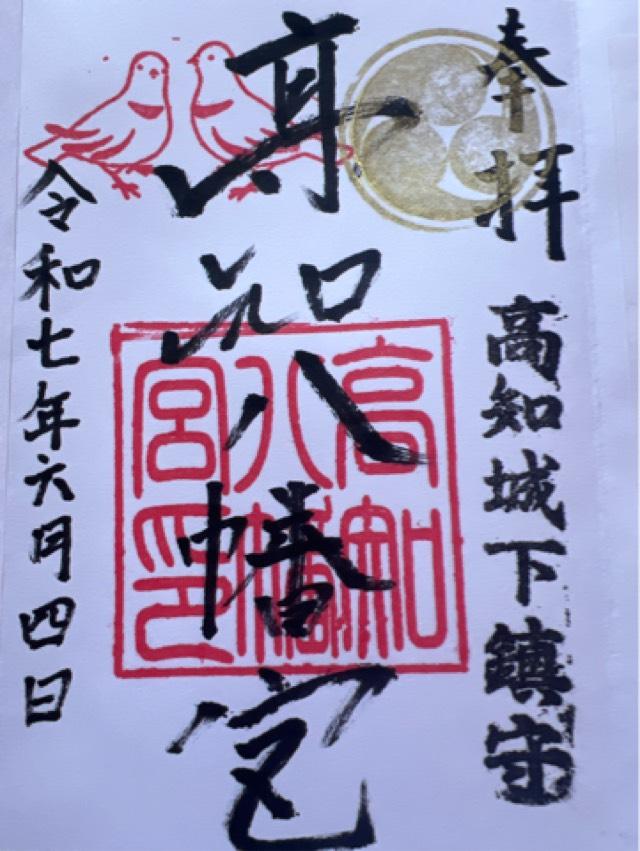 奉拝
高知城下鎮守
高知八幡宮
高知八幡宮印
令和七年六月四日